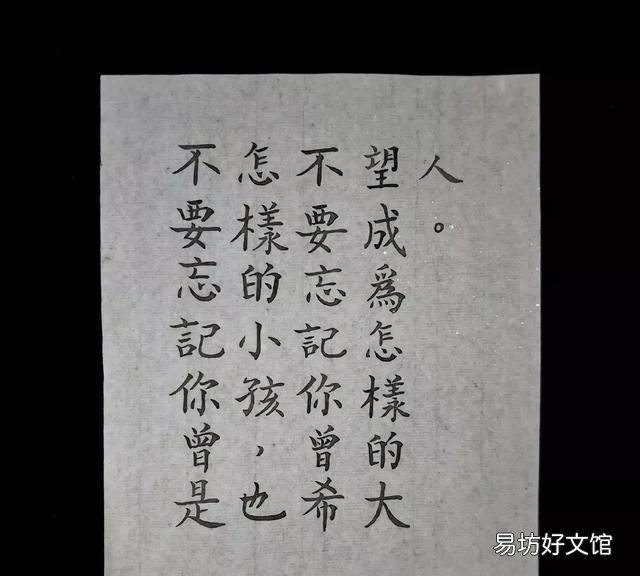 不要忘記你曾是
怎樣的小孩，也
不要忘記你曾希
望成爲怎樣的大
人。
易坊好文馆